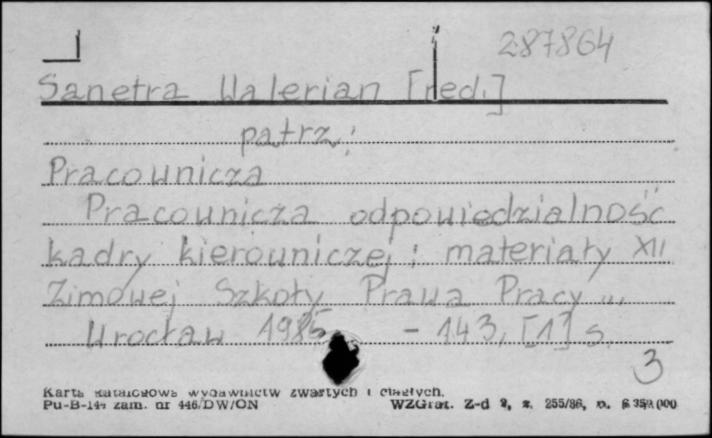 287864
Sanetra Walerian [red.]
patrz:
Pracownicza
Pracownicza odpowiedzialność
kadry kierowniczej : materiały XII
Zimowej Szkoły Prawa Pracy ...
Wrocław 1985 - 143, [1] s.
3
Karta katalogowa wydawnictw zwartych i ciągłych.
Pu-B-144 zam. nr 446/DW/ON WZGraf. Z-d 2, z. 255/86, n. 000